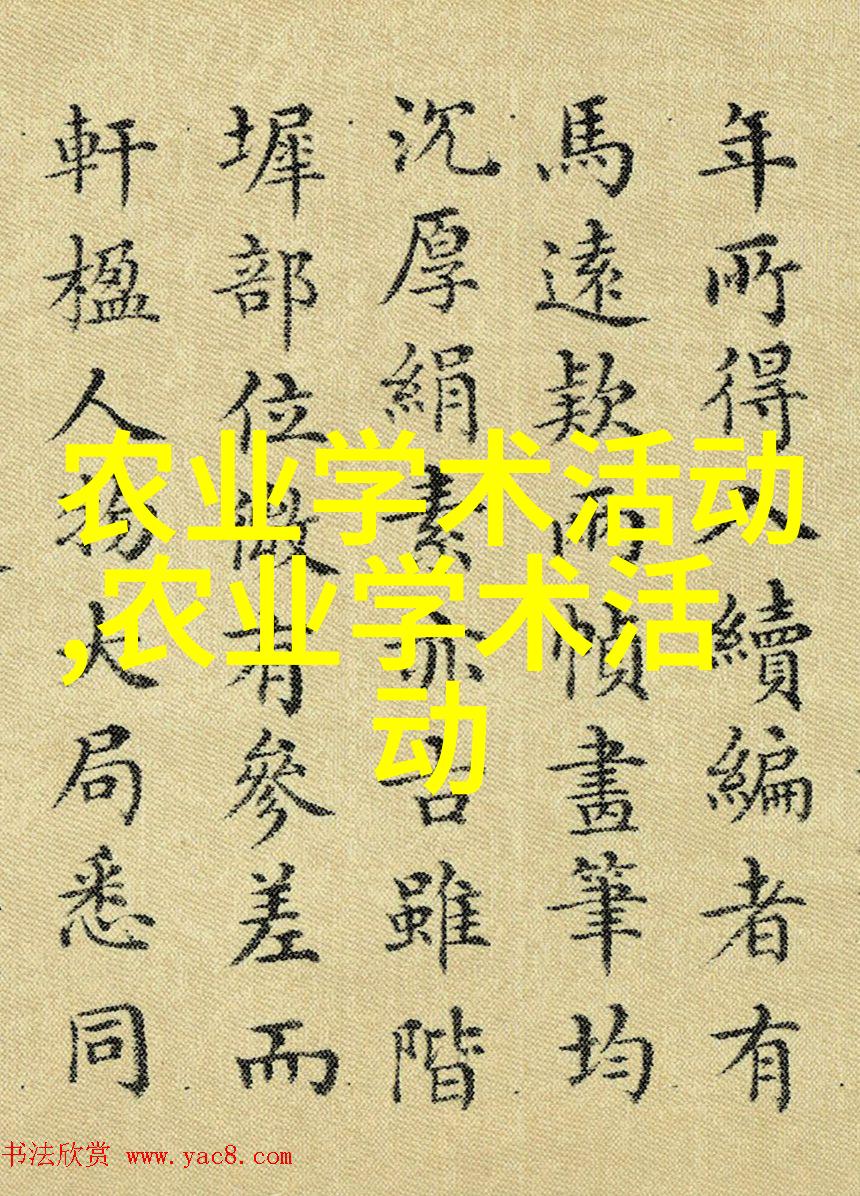 年所得入續編者有
馬遠款兩幀畫筆均
沉厚絹素亦古雖階
墀部位微有參差而
軒楹人物大局悉同
农业学术活动
,农业学术活
动
书法欣赏 www.yac8.com